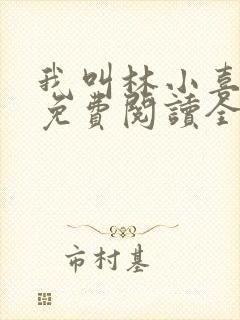 我叫林小喜
免費閱讀全
市村基